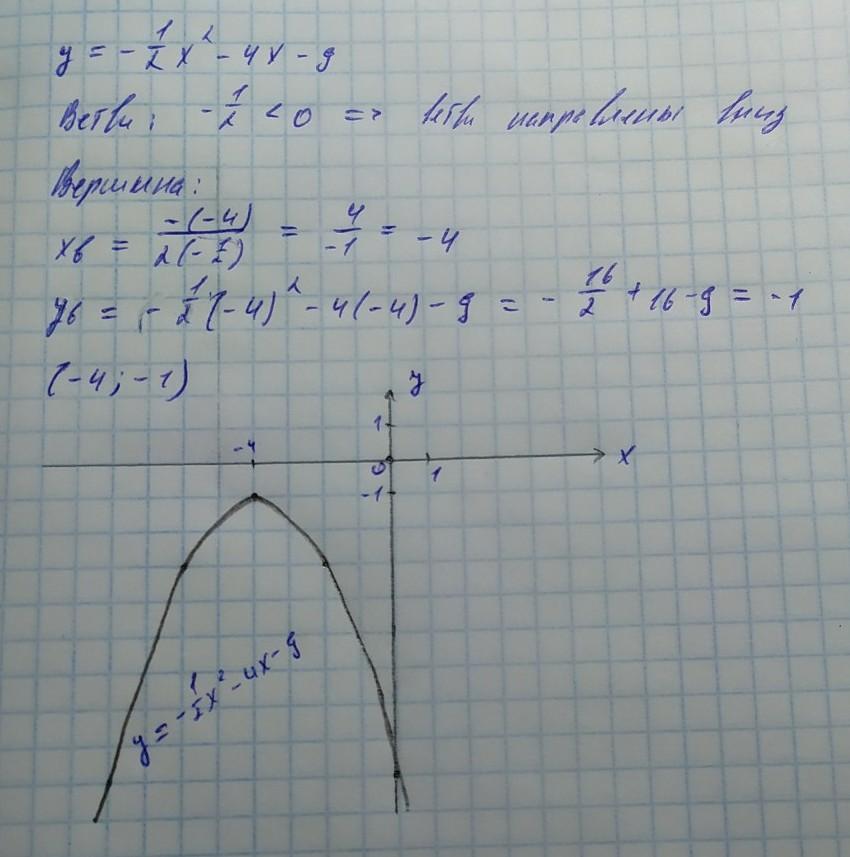 y = -1/2 x² - 4x - 9
Ветви: -1/2 < 0 => ветви направлены вниз
Вершина:
xв = -(-4)/2(-1/2) = 4/-1 = -4
yв = -1/2(-4)² - 4(-4) - 9 = -16/2 + 16 - 9 = -1
(-4; -1)
y
1
-4
x
0
1
-1
y = -1/2 x² - 4x - 9